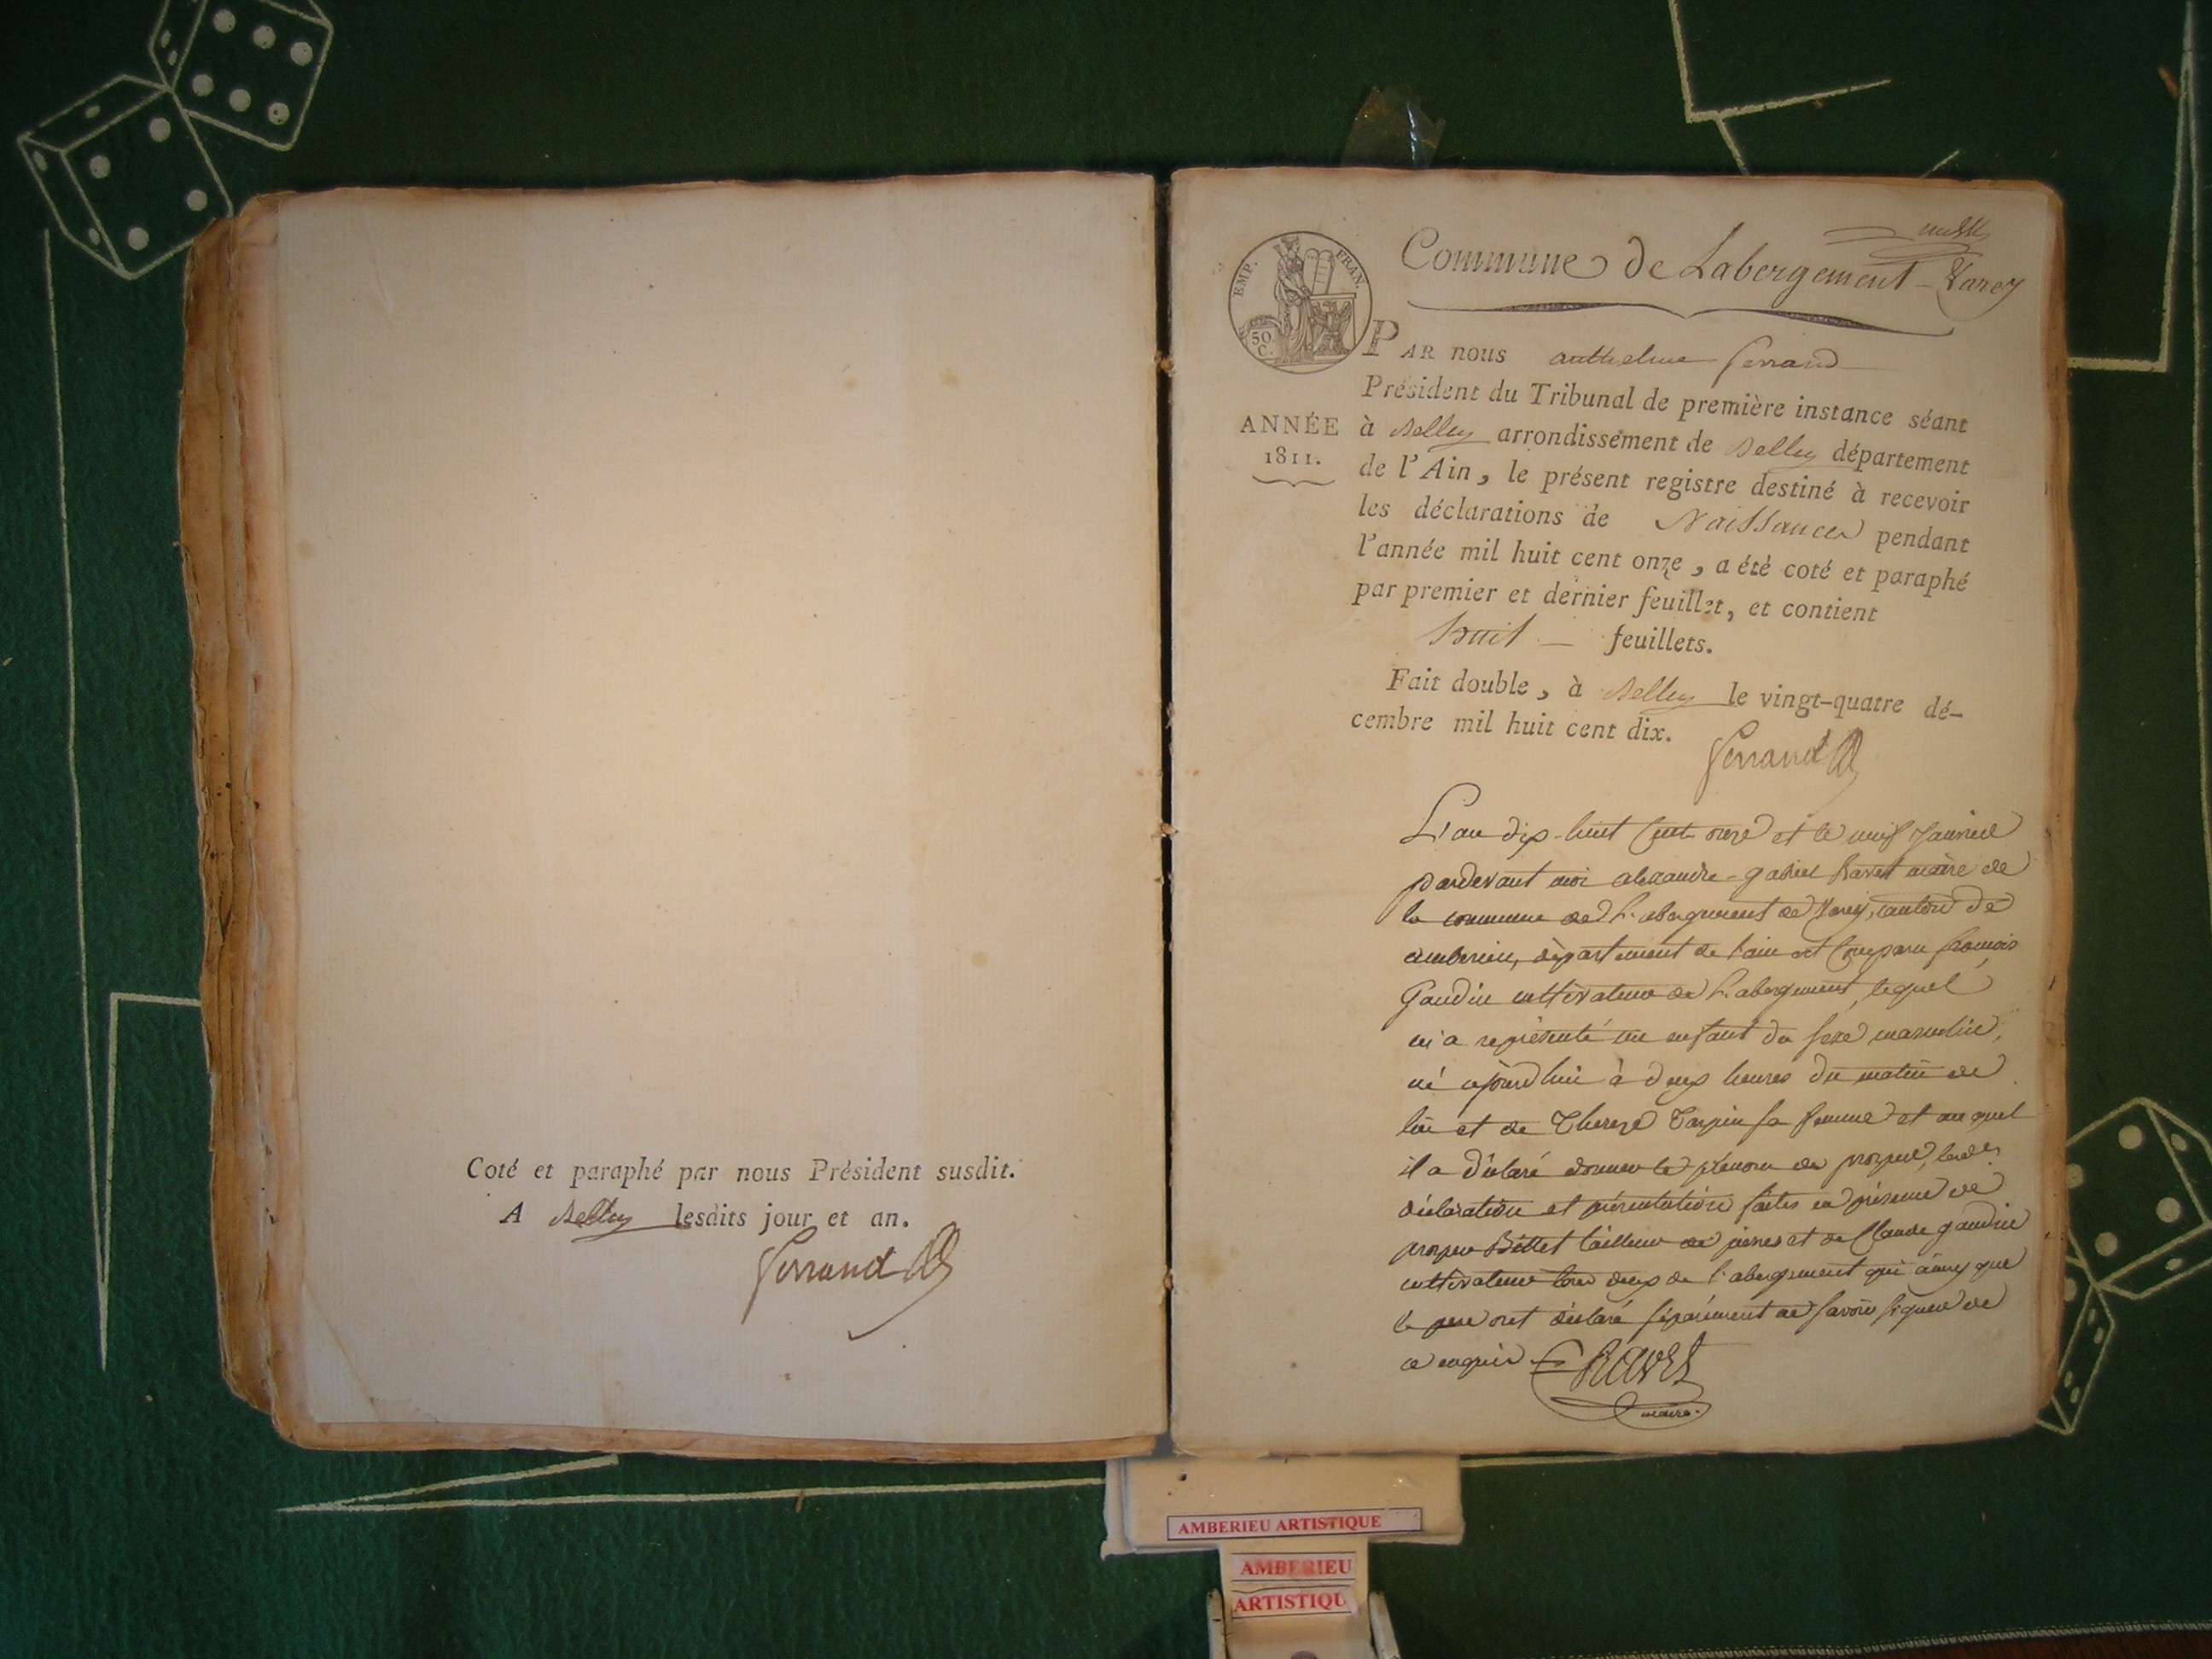 Coté et paraphé par nous Président susdit.
A Belley lesdits jour et an.
Ferrand
Commune de Labergement-Varey
EMP. FRAN.
50 C.
ANNÉE
1811.
PAR nous anthelme ferrand
Président du Tribunal de première instance séant
à Belley arrondissement de Belley département
de l'Ain, le présent registre destiné à recevoir
les déclarations de Naissances pendant
l'année mil huit cent onze, a été coté et paraphé
par premier et dernier feuillet, et contient
huit feuillets.
Fait double, à Belley le vingt-quatre dé-
cembre mil huit cent dix.
Ferrand
L'an dix-huit cent onze et le neuf janvier
pardevant moi alexandre-gabriel Ravet maire de
la commune de L'abergement de Varey, canton de
amberieu, département de l'ain est comparu françois
Gaudin cultivateur de L'abergement, lequel
m'a représenté un enfant du sexe masculin,
né ajourdhui à deux heures du matin de
lui et de Thereze Tarpin sa femme et auquel
il a déclaré donner le prénom de prosper, lesdes
déclaration et présentation faites en présence de
prosper Bettet tailleur de pierres et de Claude gaudin
cultivateur tous deux de l'abergement qui ainsy que
le pere ont déclaré séparément ne savoir signer de
ce enquis
Ravet
maire.
AMBERIEU ARTISTIQUE
AMBERIEU
ARTISTIQU